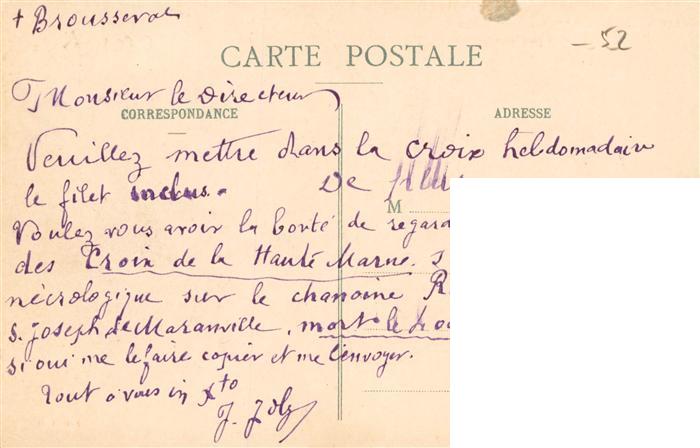 + Brousseval
- 52
CARTE POSTALE
Monsieur le Directeur
CORRESPONDANCE
ADRESSE
Veuillez mettre dans la croix hebdomadaire
le filet inclus. De
M
Voulez vous avoir la bonté de regard
des Croix de la Haute Marne. s
nécrologique sur le chanoine R
S. Joseph de Maranville, mort le
si oui me le faire copier et me l'envoyer.
Tout à vous in Xto
J. Joly